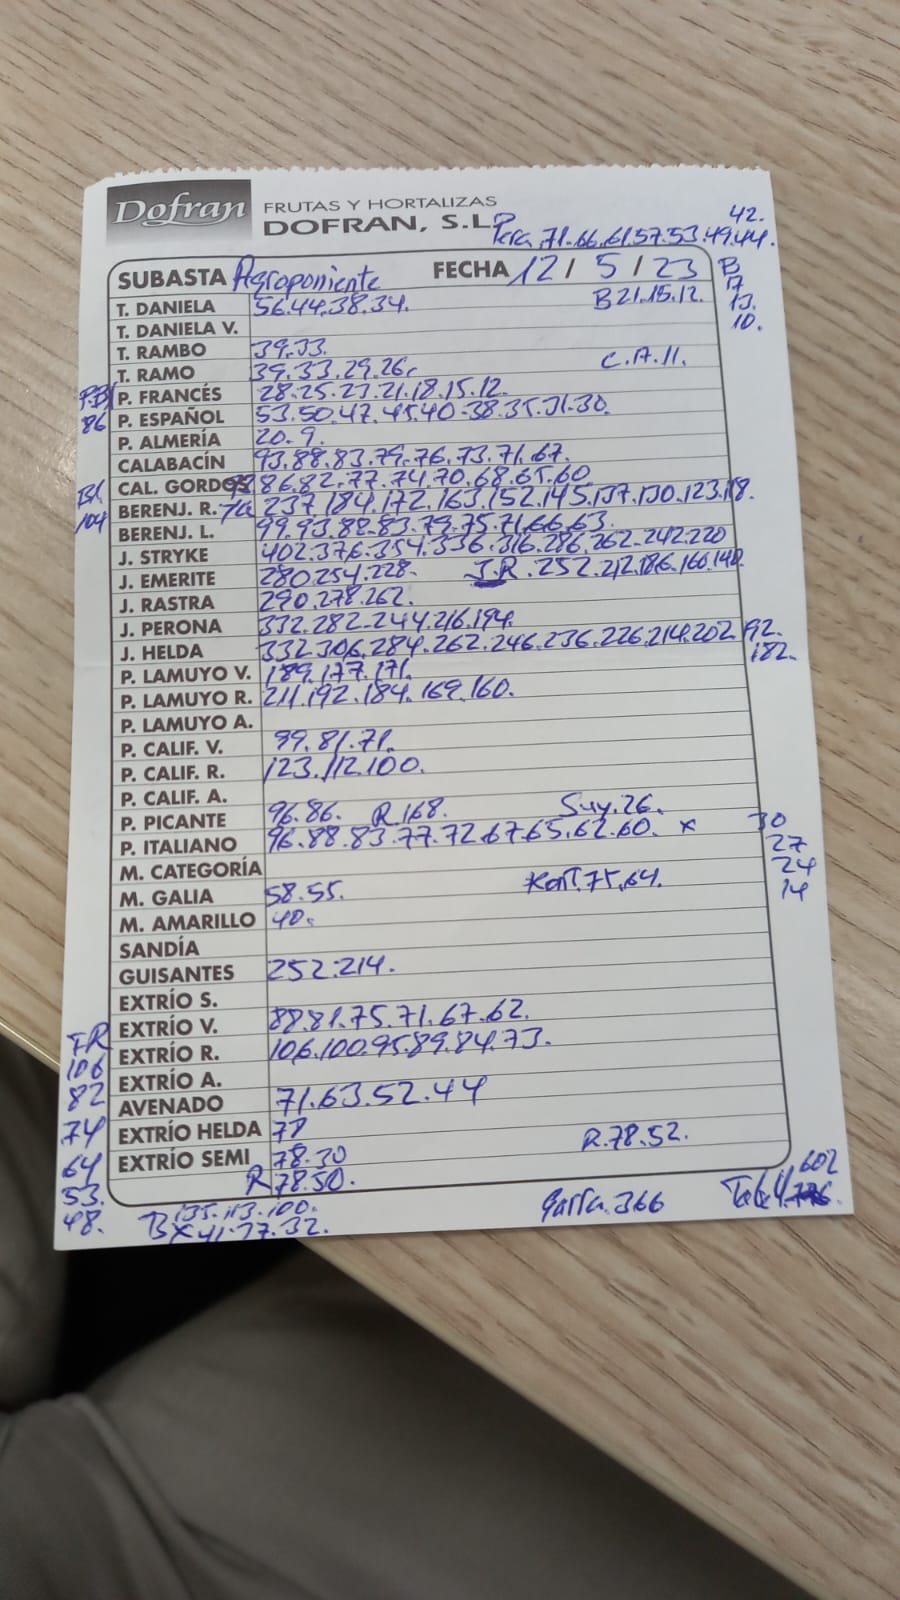 Dofran FRUTAS Y HORTALIZAS
DOFRAN, S.L.
42.
Pera.71.66.61.57.53.49.44.
SUBASTA Agroponiente FECHA 12 / 5 / 23 B
17
13.
10.
T. DANIELA 56.44.38.34. B21.15.12.
T. DANIELA V.
T. RAMBO 39.33.
T. RAMO 39.33.29.26. C.A.11.
P. FRANCÉS 28.25.23.21.18.15.12.
86 P. ESPAÑOL 53.50.47.45.40-38.35.31.30.
P. ALMERÍA 20.9.
CALABACÍN 93.88.83.79.76.73.71.67.
CAL. GORDOS 86.82.77.74.70.68.65.60
Bl. BERENJ. R. 237.184.172.163.152.145.137.130.123.118.
104 BERENJ. L. 99.93.88.83.79.75.71.66.63.
J. STRYKE 402.376.354.336.316.286.262.242.220
J. EMERITE 280.254.228. J.R.252.212.186.160.140.
J. RASTRA 290.278.262.
J. PERONA 332.282.244.216.194.
J. HELDA 332.306.284.262.246.236.226.214.202 192.
182.
P. LAMUYO V. 189.177.171.
P. LAMUYO R. 211.192.184.169.160.
P. LAMUYO A.
P. CALIF. V. 99.81.71.
P. CALIF. R. 123.112.100.
P. CALIF. A.
P. PICANTE 96.86. R168. Suy.26.
P. ITALIANO 96.88.83.77.72.67.65.62.60. x 30
27
24
14
M. CATEGORÍA
M. GALIA 58.55. 75.64.
M. AMARILLO 40.
SANDÍA
GUISANTES 252.214.
EXTRÍO S.
EXTRÍO V. 88.81.75.71.67.62.
EXTRÍO R. 106.100.95.89.84.73.
EXTRÍO A.
AVENADO 71.63.52.44
EXTRÍO HELDA 78
EXTRÍO SEMI 78.30 R.78.52.
R78.50.
106
82
74
64
53.
48.
B 135.113.100.
X 41.37.32.
Garra.366
602